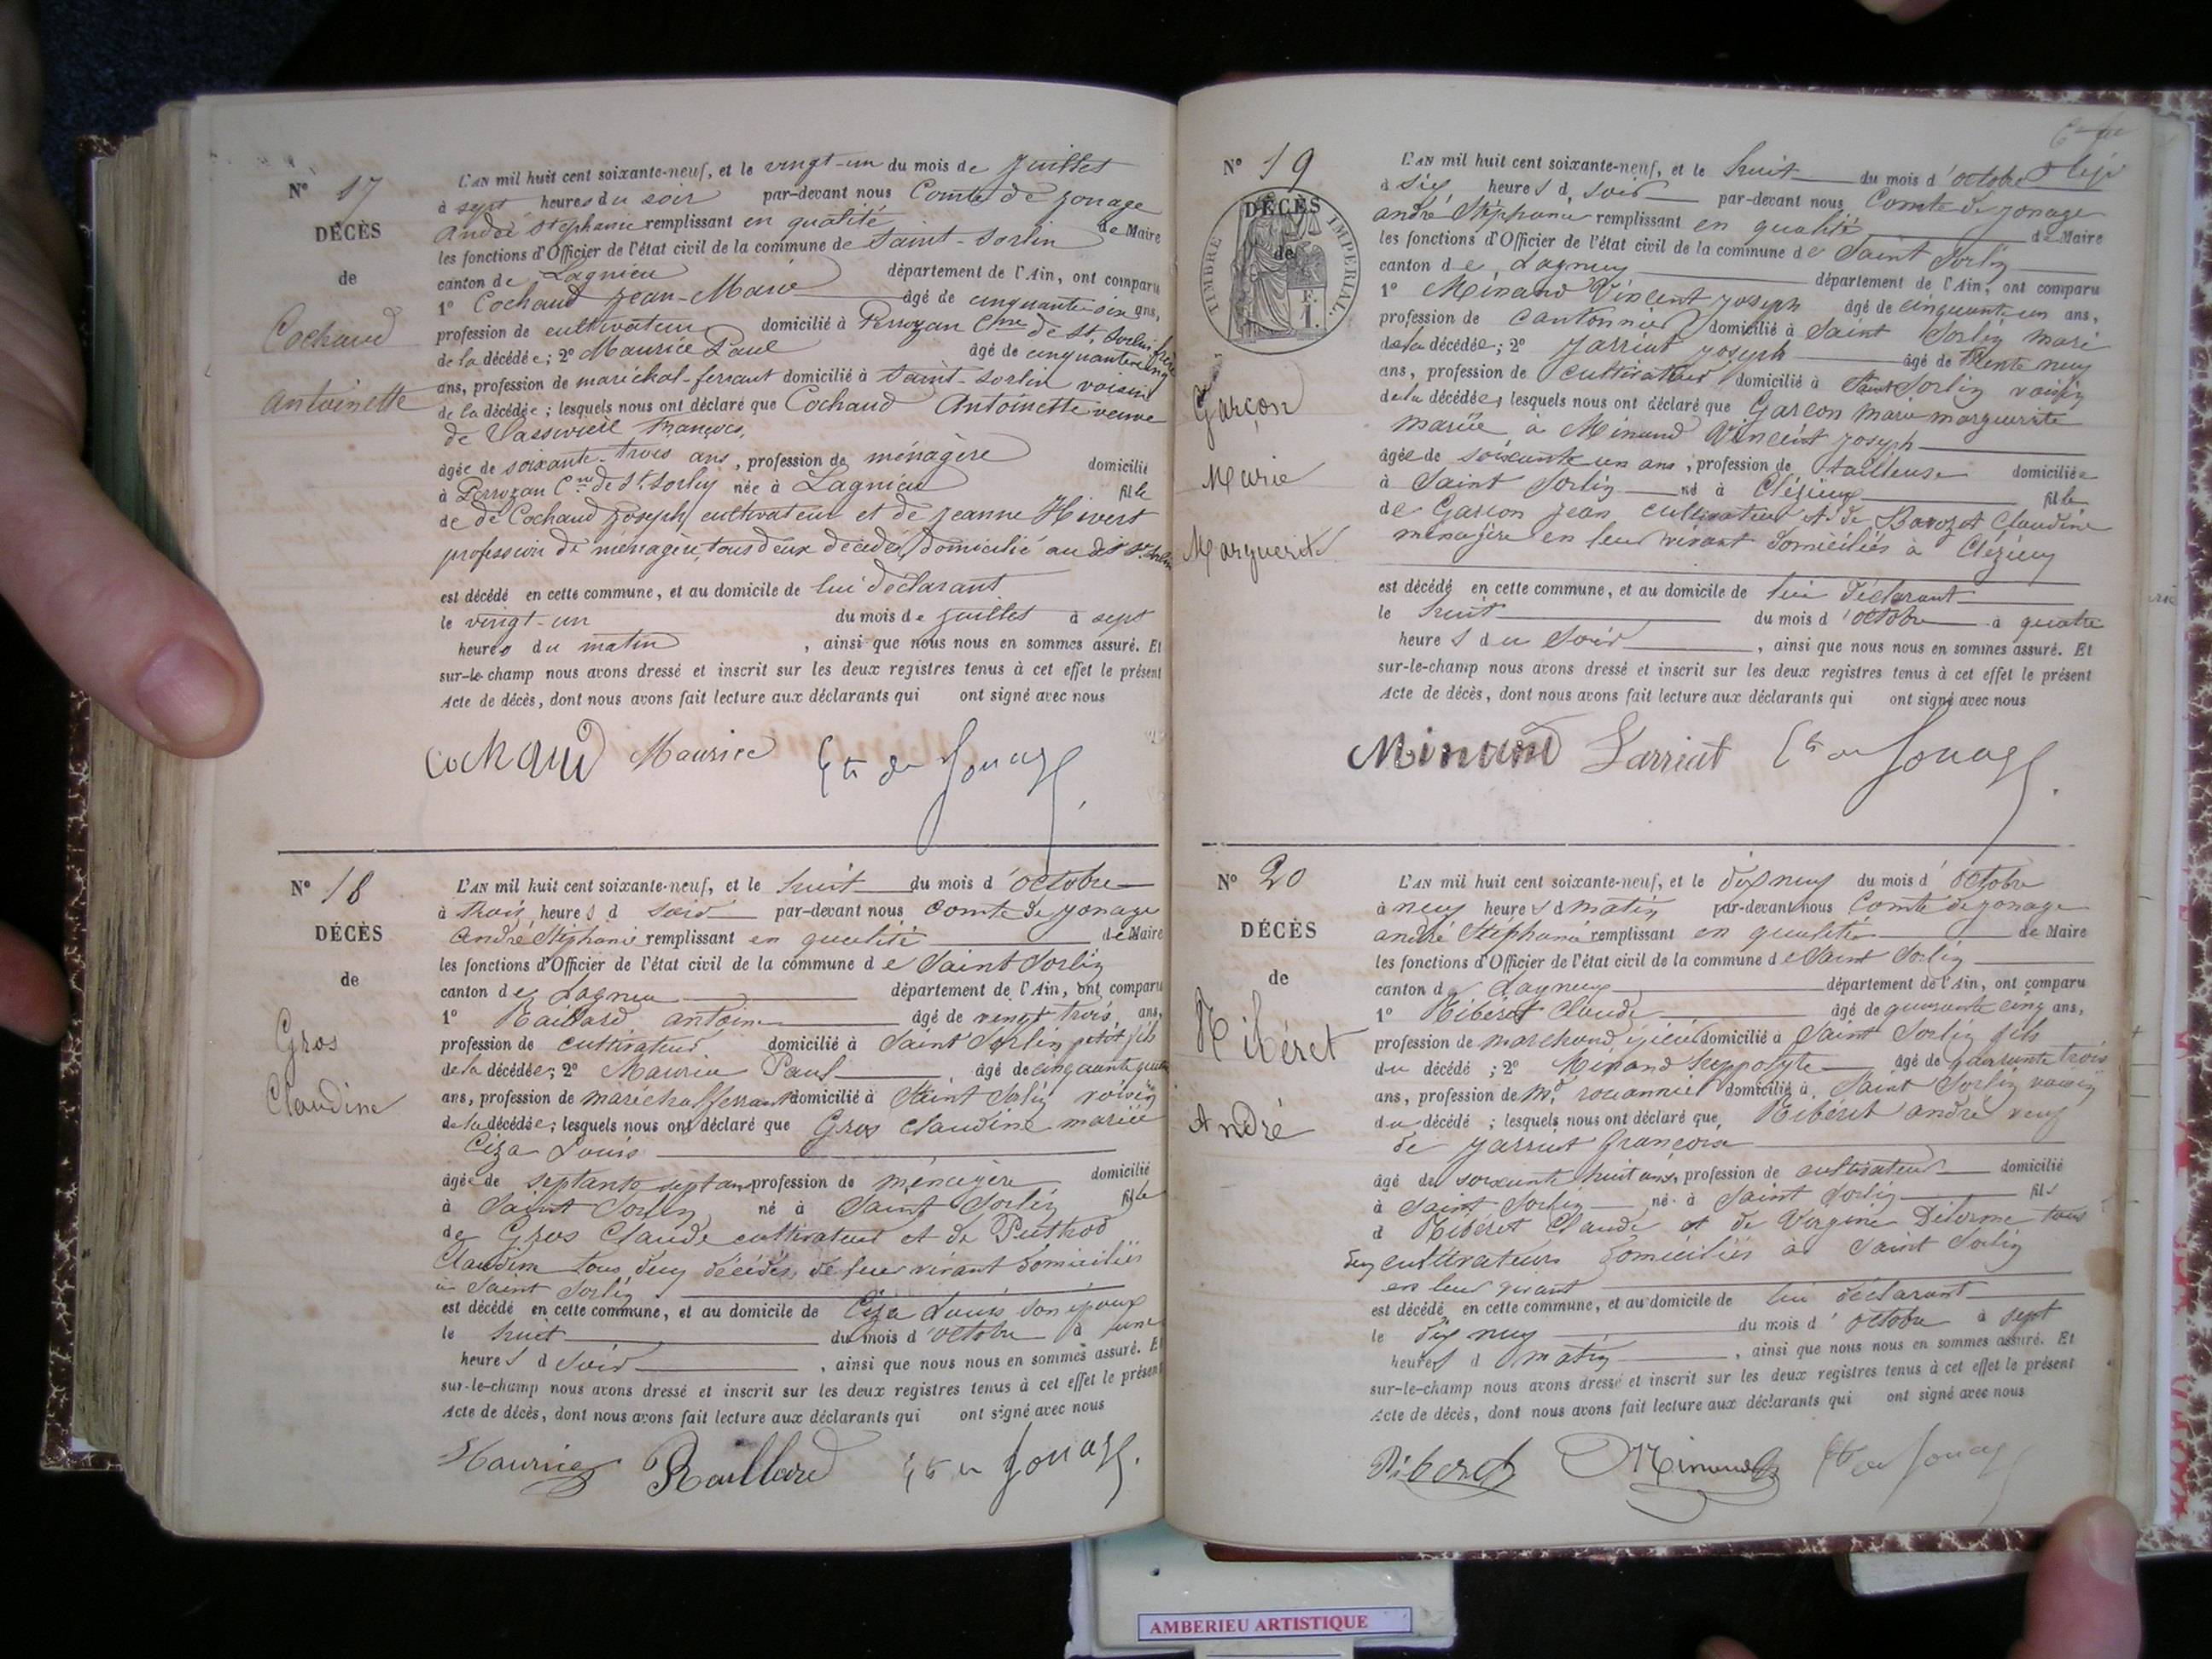 N° 17
DÉCÈS
de
Cochaud
Antoinette
L'AN mil huit cent soixante-neuf, et le vingt-un du mois de Juillet
à sept heures du soir par-devant nous Comte de Jonage
André Stéphanie remplissant en qualité de Maire
les fonctions d'Officier de l'état civil de la commune de Saint-Sorlin
canton de Lagnieu département de l'Ain, ont comparu
1° Cochaud Jean-Marie âgé de cinquante-six ans,
profession de cultivateur domicilié à Perrozan Cne de St. Sorlin frère
de la décédée; 2° Maurice Paul âgé de cinquante cinq
ans, profession de maréchal-ferrant domicilié à Saint-Sorlin voisin
de la décédée; lesquels nous ont déclaré que Cochaud Antoinette veuve
de François,
âgée de soixante-trois ans, profession de ménagère domicilié
à Perrozan Cne de St. Sorlin née à Lagnieu fille
de de Cochaud Joseph cultivateur et de Jeanne Hivert
profession de ménagère, tous deux décédés, domicilié au dit St. Sorlin
est décédé en cette commune, et au domicile de lui déclarant
le vingt-un du mois de juillet à sept
heures du matin, ainsi que nous nous en sommes assuré. Et
sur-le-champ nous avons dressé et inscrit sur les deux registres tenus à cet effet le présent
Acte de décès, dont nous avons fait lecture aux déclarants qui ont signé avec nous
Cochaud Maurice Cte de Jonage
N° 18
DÉCÈS
de
Gros
Claudine
L'AN mil huit cent soixante-neuf, et le huit du mois d'octobre
à trois heures d soir par-devant nous Comte de Jonage
André Stéphanie remplissant en qualité de Maire
les fonctions d'Officier de l'état civil de la commune de Saint Sorlin
canton de Lagnieu département de l'Ain, ont comparu
1° Raillard antoine âgé de vingt trois ans,
profession de cultivateur domicilié à Saint Sorlin petit fils
de la décédée; 2° Maurice Paul âgé de cinquante quatre
ans, profession de maréchal ferrant domicilié à Saint Sorlin voisin
de la décédée; lesquels nous ont déclaré que Gros Claudine mariée
Ciza Louis
âgée de septante sept ans profession de ménagère domicilié
à Saint Sorlin né à Saint Sorlin fille
de Gros Claude cultivateur et de Puthod
Claudine tous deux décédés, de leur vivant domiciliés
à Saint Sorlin
est décédé en cette commune, et au domicile de Ciza Louis son époux
le huit du mois d'octobre à une
heures d soir, ainsi que nous nous en sommes assuré. Et
sur-le-champ nous avons dressé et inscrit sur les deux registres tenus à cet effet le présent
Acte de décès, dont nous avons fait lecture aux déclarants qui ont signé avec nous
Maurice Raillard Cte de Jonage
N° 19
TIMBRE IMPERIAL
F. 1.
DÉCÈS
de
Garçon
Marie
Marguerite
L'AN mil huit cent soixante-neuf, et le huit du mois d'octobre
à six heures d soir par-devant nous Comte de Jonage
andré Stéphanie remplissant en qualité de Maire
les fonctions d'Officier de l'état civil de la commune de Saint Sorlin
canton de Lagnieu département de l'Ain, ont comparu
1° Minand Vincent Joseph âgé de cinquante un ans,
profession de Cantonnier domicilié à Saint Sorlin mari
de la décédée; 2° Jarriat Joseph âgé de trente neuf
ans, profession de Cultivateur domicilié à Saint Sorlin voisin
de la décédée, lesquels nous ont déclaré que Garçon Marie marguerite
mariée à Minand Vincent Joseph
âgée de soixante un ans, profession de tailleuse domiciliée
à Saint Sorlin né à Clézieux fille
de Garçon Jean cultivateur et de Barozet Claudine
ménagère en leur vivant domiciliés à Clézieu
est décédé en cette commune, et au domicile de lui déclarant
le huit du mois d'octobre à quatre
heures du soir, ainsi que nous nous en sommes assuré. Et
sur-le-champ nous avons dressé et inscrit sur les deux registres tenus à cet effet le présent
Acte de décès, dont nous avons fait lecture aux déclarants qui ont signé avec nous
Minand Jarriat Cte de Jonage
N° 20
DÉCÈS
de
Ribéret
André
L'AN mil huit cent soixante-neuf, et le dix neuf du mois d'octobre
à neuf heures d matin par-devant nous Comte de Jonage
andré Stéphanie remplissant en qualité de Maire
les fonctions d'Officier de l'état civil de la commune de Saint Sorlin
canton d Lagnieu département de l'Ain, ont comparu
1° Ribéret Claude âgé de quarante cinq ans,
profession de marchand épicier domicilié à Saint Sorlin fils
du décédé; 2° Minand hyppolyte âgé de quarante trois
ans, profession de Md. rouannier domicilié à Saint Sorlin voisin
du décédé; lesquels nous ont déclaré que Ribéret André veuf
de Jarriat françoise
âgé de soixante huit ans, profession de cultivateur domicilié
à Saint Sorlin né à Saint Sorlin fils
d Ribéret Claude et de Virginie Delorme tous
deux cultivateurs domiciliés à Saint Sorlin
en leur vivant
est décédé en cette commune, et au domicile de lui déclarant
le dix neuf du mois d'octobre à sept
heures d matin, ainsi que nous nous en sommes assuré. Et
sur-le-champ nous avons dressé et inscrit sur les deux registres tenus à cet effet le présent
Acte de décès, dont nous avons fait lecture aux déclarants qui ont signé avec nous
Riberet Minand Cte de Jonage
AMBERIEU ARTISTIQUE